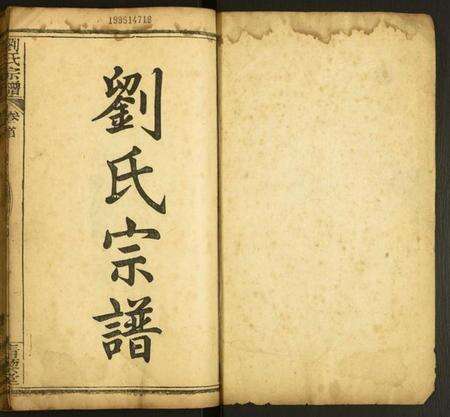 193514718
劉氏宗譜
劉氏宗譜
卷首